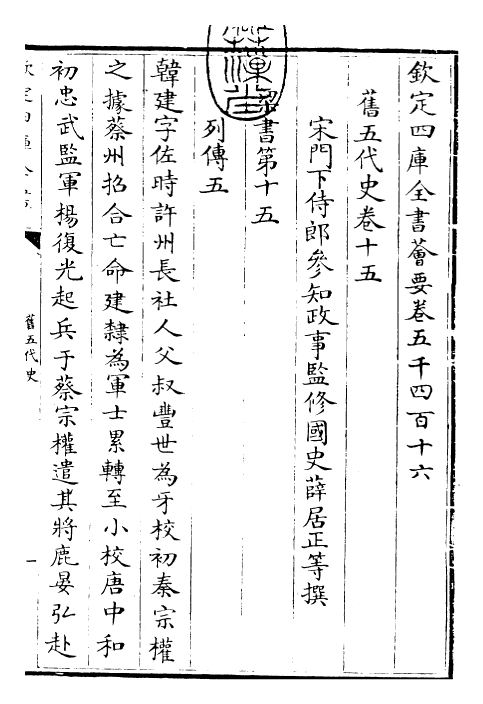 欽定四庫全書薈要卷五千四百十六
舊五代史卷十五
宋門下侍郎參知政事監修國史薛居正等撰
梁書第十五
列傳五
韓建字佐時許州長社人父叔豐世為牙校初秦宗權
之據蔡州招合亡命建隸為軍士累轉至小校唐中和
初忠武監軍楊復光起兵于蔡宗權遣其將鹿晏弘赴
舊五代史
一